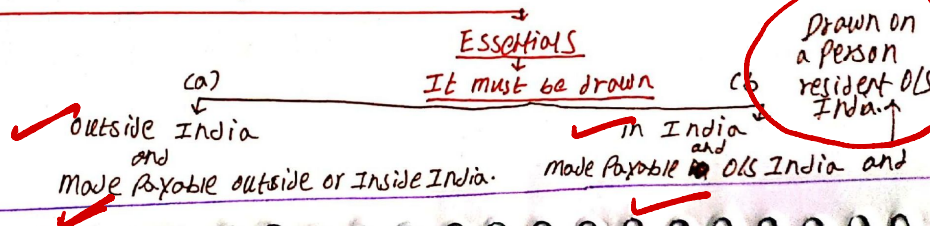 Essentials
It must be drawn
(a)
outside India
and
made payable outside or Inside India.
(b
in India
and
made payable O/S India and
Drawn on
a person
resident O/S
India.